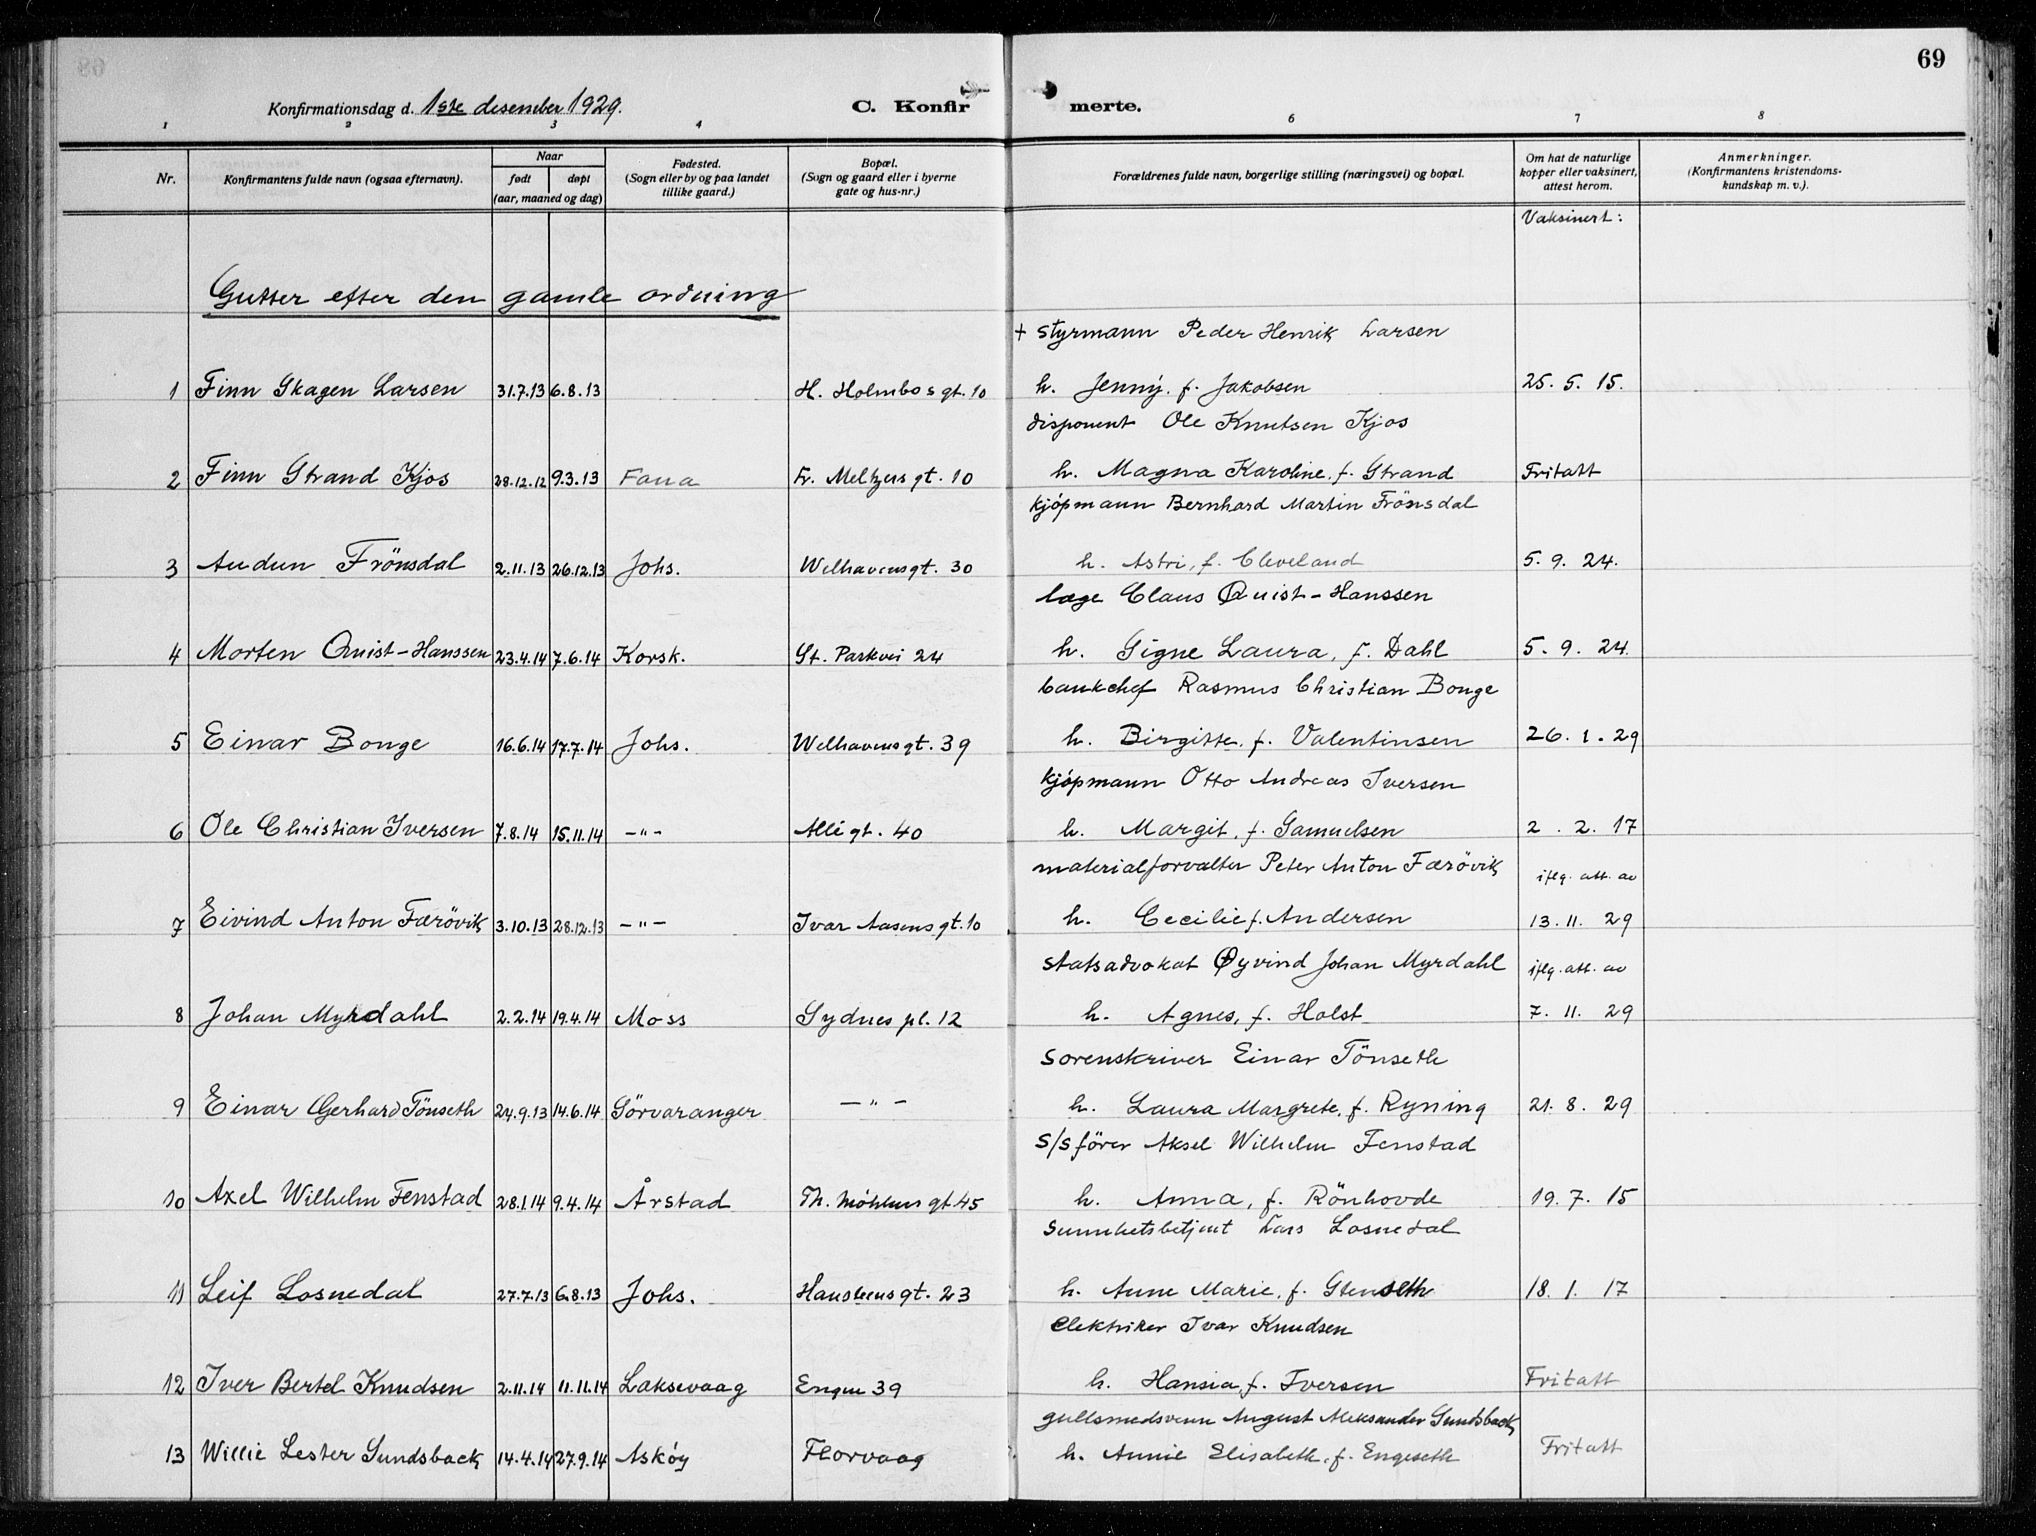 69
Konfirmationsdag d. 1ste desember 1929. C. Konfirmerte.
1 2 3 4 6 7 8
Nr. Konfirmantens fulde navn (ogsaa efternavn). Naar født døpt (aar, maaned og dag) Fødested. (Sogn eller by og paa landet tillike gaard.) Bopæl. (Sogn og gaard eller i byerne gate og hus-nr.) Forældrenes fulde navn, borgerlige stilling (næringsvei) og bopæl. Om hat de naturlige kopper eller vaksinert, attest herom. Anmerkninger. (Konfirmantens kristendoms-kundskap m. v.).
Vaksinert:
Gutter efter den gamle ordning
+ styrmann Peder Henrik Larsen
1 Finn Skagen Larsen 31.7.13 6.8.13 H. Holmbos gt. 10 h. Jenny, f. Jakobsen 25. 5. 15.
disponent Ole Knutsen Kjos
2 Finn Strand Kjos 28.12.12 9.3.13 Fana Fr. Meltzers gt. 10 h. Magna Karoline, f. Strand Fritatt
kjöpmann Bernhard Martin Frönsdal
3 Audun Frönsdal 2.11.13 26.12.13 Johs. Welhavensgt. 30 h. Astri, f. Cleveland 5. 9. 24.
læge Claus Quist-Hanssen
4 Morten Quist-Hanssen 23.4.14 7.6.14 Korsk. St. Parkvei 24 h. Signe Laura, f. Dahl 5. 9. 24.
bankchef Rasmus Christian Bonge
5 Einar Bonge 16.6.14 17.7.14 Johs. Welhavensgt. 39 h. Birgitte, f. Valentinsen 26. 1. 29
kjöpmann Otto Andreas Iversen
6 Ole Christian Iversen 7.8.14 15.11.14 -"- Allégt. 40 h. Margit, f. Samuelsen 2. 2. 17
materialforvalter Peter Anton Færövik iflg. att. av
7 Eivind Anton Færövik 3.10.13 28.12.13 -"- Ivar Aasens gt. 10 h. Cecilie f. Andersen 13. 11. 29
statsadvokat Øyvind Johan Myrdahl iflg. att. av
8 Johan Myrdahl 2.2.14 19.4.14 Moss Sydnes pl. 12 h. Agnes, f. Holst 7. 11. 29
sorenskriver Einar Tönseth
9 Einar Gerhard Tönseth 24.9.13 14.6.14 Sörvaranger -"- h. Laura Margrete, f. Ryning 21. 8. 29
s/s förer Aksel Wilhelm Fenstad
10 Axel Wilhelm Fenstad 28.1.14 9.4.14 Årstad Th. Möhlens gt 45 h. Anna, f. Rönhovde 19. 7. 15
sunnhetsbetjent Lars Losnedal
11 Leif Losnedal 27.7.13 6.8.13 Johs. Hansteensgt. 23 h. Anne Marie, f. Stenseth 18. 1. 17
elektriker Ivar Knudsen
12 Iver Bertel Knudsen 2.11.14 11.11.14 Laksevaag Engen 39 h. Hansia, f. Iversen Fritatt
gullsmedsvenn August Aleksander Sundsback
13 Willie Lester Sundsback 14.4.14 27.9.14 Asköy Florvaag h. Annie Elisabeth, f. Engeseth Fritatt